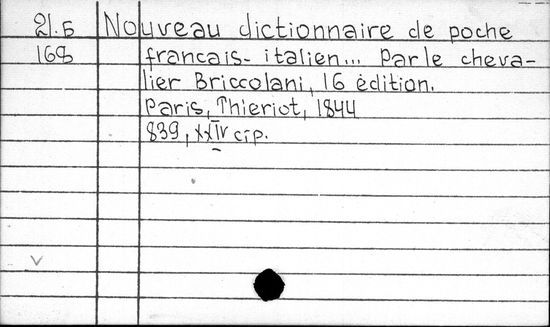 21.5 Nouveau dictionnaire de poche
168 francais-italien... Par le cheva-
lier Briccolani, 16 édition.
Paris, Thieriot, 1844
839, XXIV стр.
V